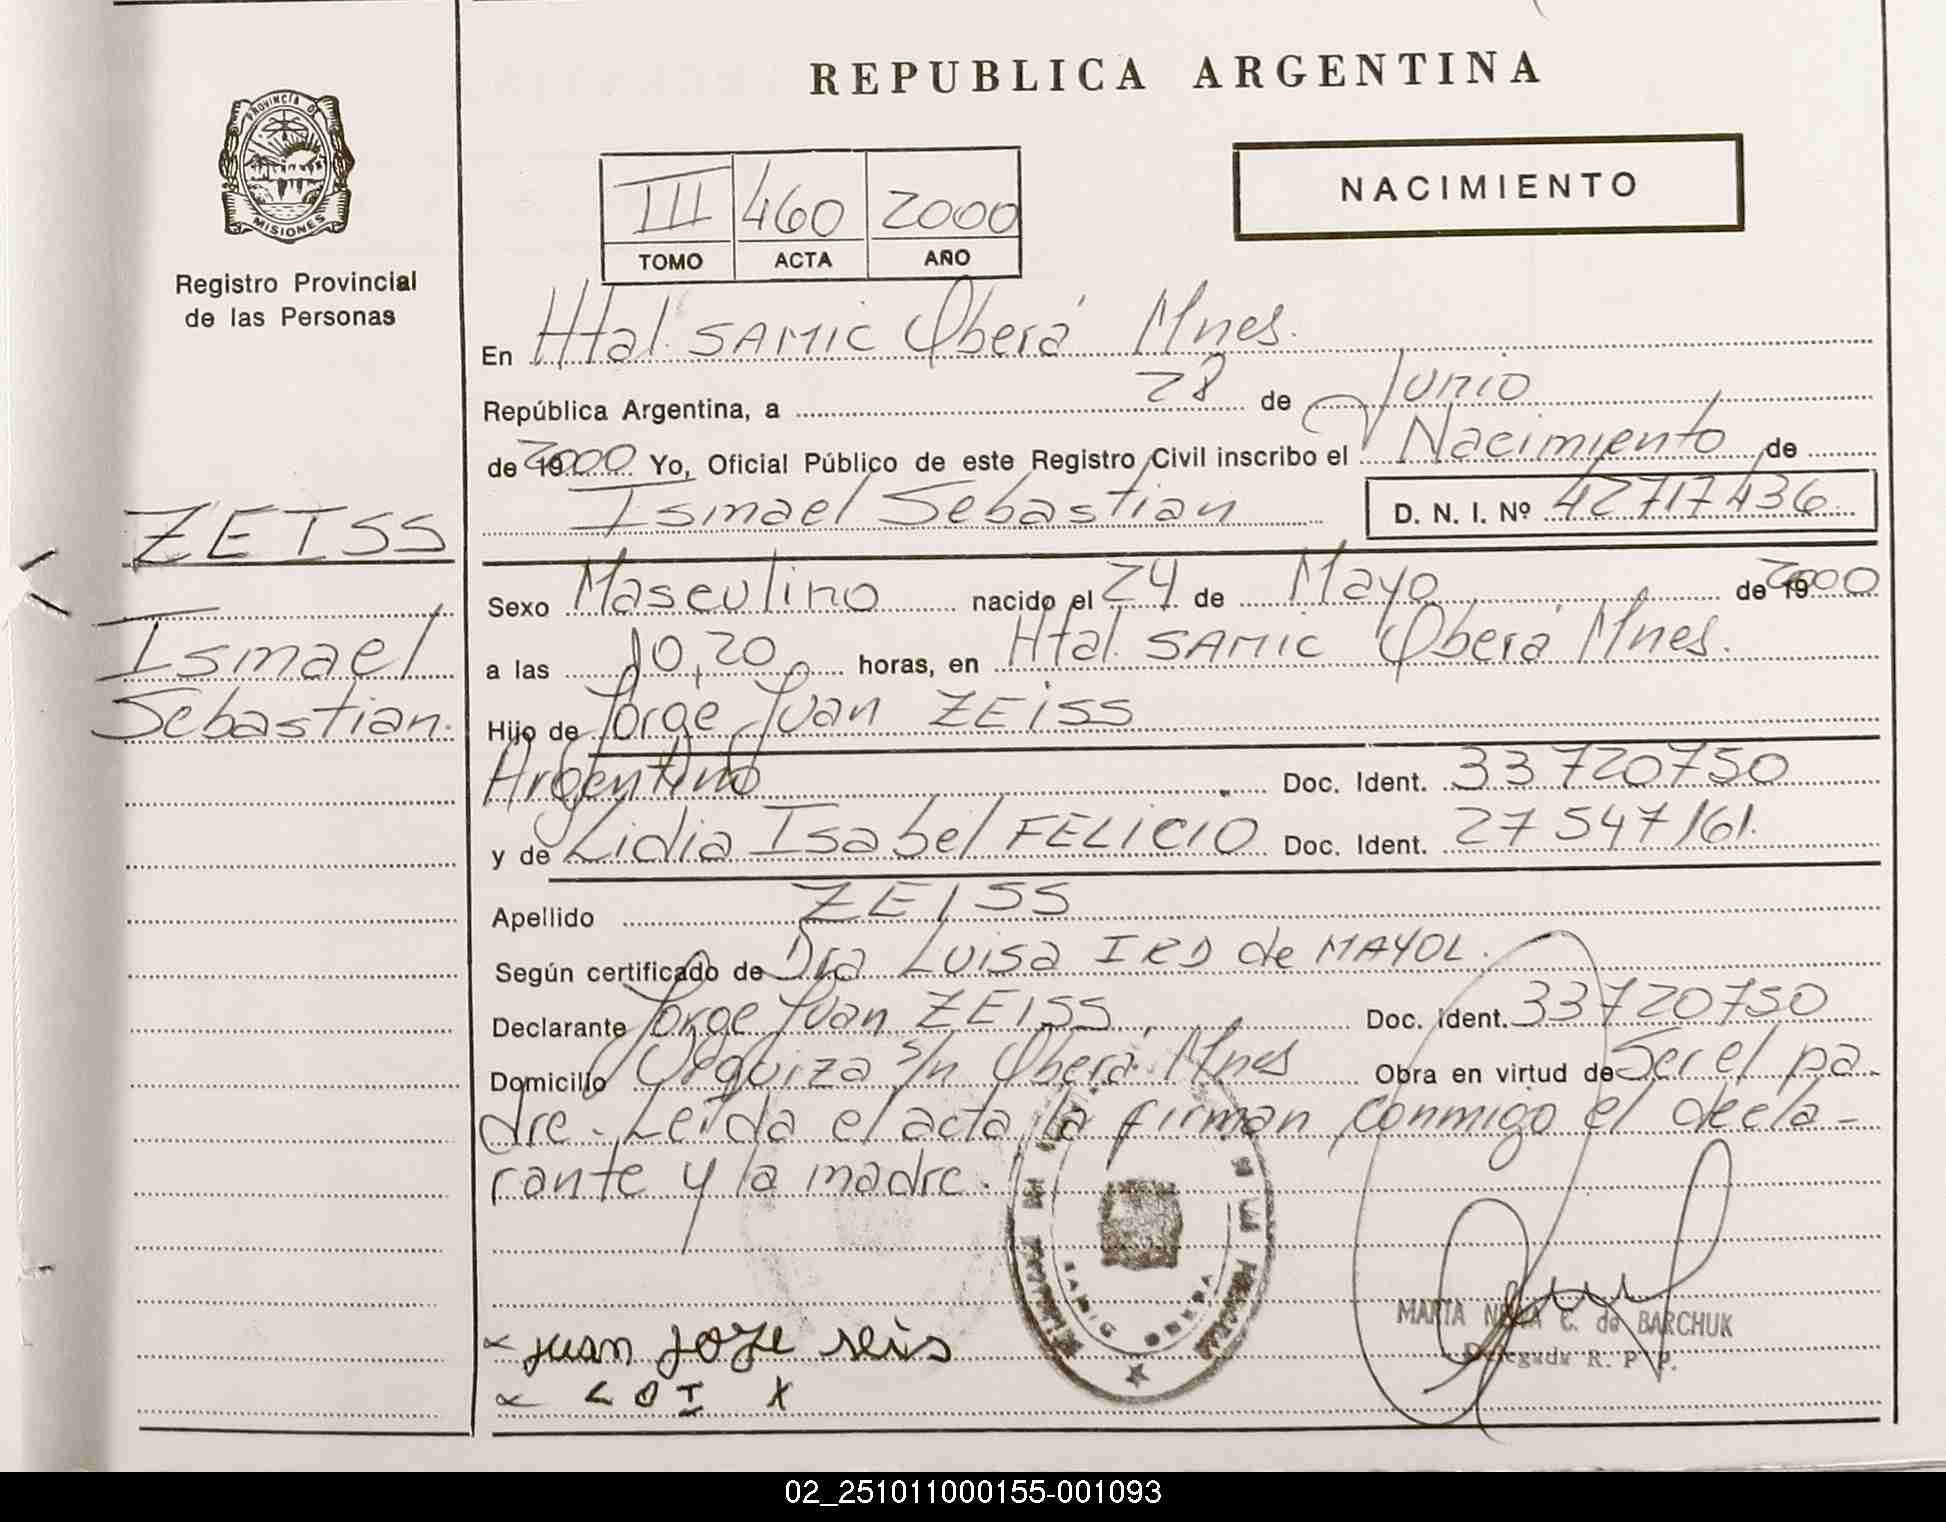 REPUBLICA ARGENTINA
PROVINCIA DE
MISIONES
Registro Provincial
de las Personas
NACIMIENTO
III 460 2000
TOMO ACTA AÑO
En Htal SAMIC Oberá Mnes.
República Argentina, a 28 de Junio
de 2000 Yo, Oficial Público de este Registro Civil inscribo el Nacimiento de
Ismael Sebastian D. N. I. Nº 42717436.
ZEISS
Ismael
Sebastian.
Sexo Masculino nacido el 24 de Mayo de 2000
a las 10,20 horas, en Htal. SAMIC Oberá Mnes.
Hijo de Jorge Juan ZEISS
Argentino Doc. Ident. 33720750
y de Lidia Isabel FELICIO Doc. Ident. 27547161.
Apellido ZEISS
Según certificado de Dra Luisa IRD de MAYOL.
Declarante Jorge Juan ZEISS Doc. Ident. 33720750
Domicilio Urquiza s/n Oberá Mnes Obra en virtud de Ser el pa-
dre. Leída el acta la firman conmigo el decla-
rante y la madre.
SAMIC OBERA
MARIA C. de BARCHUK
Delegada R. P. P.
juan joze seis
LDI X
02_251011000155-001093